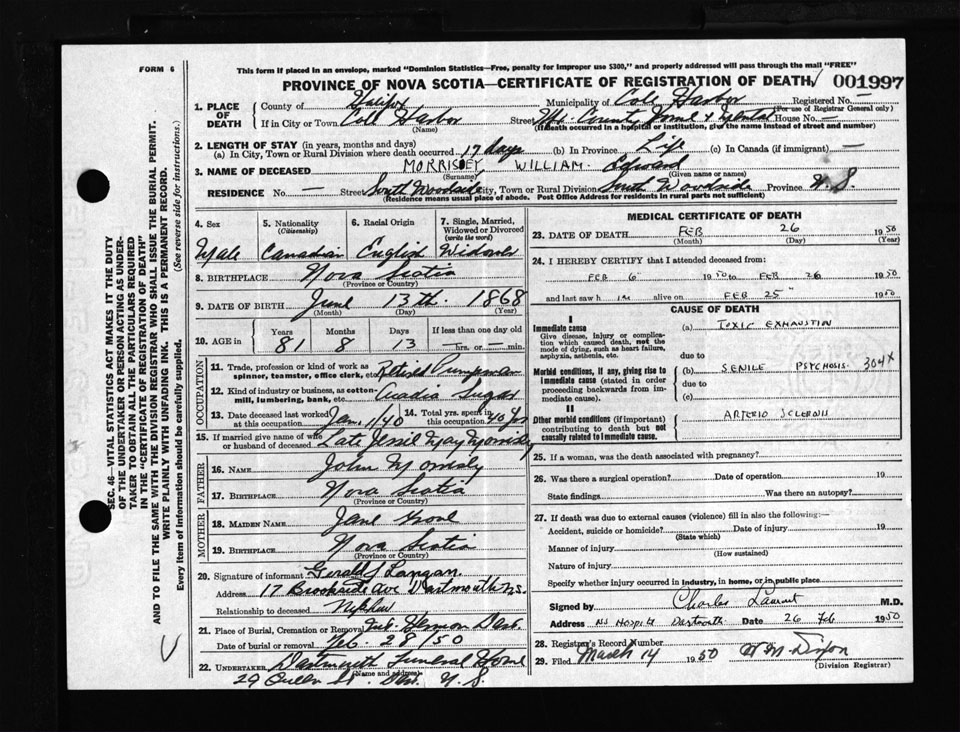 FORM 6
This form if placed in an envelope, marked "Dominion Statistics—Free, penalty for improper use $300," and properly addressed will pass through the mail "FREE"
PROVINCE OF NOVA SCOTIA—CERTIFICATE OF REGISTRATION OF DEATH
001997
1. PLACE OF DEATH
County of Halifax Municipality of Cole Harbor Registered No. —
(For use of Registrar General only)
If in City or Town Cole Harbor Street Hfx County Home & Mental House No. —
(Name) (If death occurred in a hospital or institution, give the name instead of street and number)
2. LENGTH OF STAY (in years, months and days)
(a) In City, Town or Rural Division where death occurred 17 days (b) In Province Life (c) In Canada (if immigrant) —
3. NAME OF DECEASED MORRISEY, WILLIAM Edward
(Surname) (Given name or names)
RESIDENCE No. — Street South Woodside City, Town or Rural Division South Woodside Province N.S.
(Residence means usual place of abode. Post Office Address for residents in rural parts not sufficient)
4. Sex
Male
5. Nationality (Citizenship)
Canadian
6. Racial Origin
English
7. Single, Married, Widowed or Divorced (write the word)
Widower
8. BIRTHPLACE Nova Scotia
(Province or Country)
9. DATE OF BIRTH June 13th. 1868
(Month) (Day) (Year)
10. AGE in
Years Months Days If less than one day old
81 8 13 —hrs. or —min.
OCCUPATION
11. Trade, profession or kind of work as spinner, teamster, office clerk, etc. Retired Pumpman
12. Kind of industry or business, as cotton-mill, lumbering, bank, etc. Acadia Sugar
13. Date deceased last worked at this occupation Jan. 1/40
14. Total yrs. spent in this occupation 40 yrs
15. If married give name of wife or husband of deceased Late Jessie May Morrisey
FATHER
16. NAME John
17. BIRTHPLACE Nova Scotia
(Province or Country)
MOTHER
18. MAIDEN NAME Jane
19. BIRTHPLACE Nova Scotia
(Province or Country)
20. Signature of informant Gerald J Langan
Address 17 Brookside Ave Dartmouth N.S.
Relationship to deceased Nephew
21. Place of Burial, Cremation or Removal Mt. Hermon Dart.
Date of burial or removal Feb. 28/50
22. UNDERTAKER Dartmouth Funeral Home
(Name and address)
29 Queen St. Dart. N.S.
MEDICAL CERTIFICATE OF DEATH
23. DATE OF DEATH FEB 26 1950
(Month) (Day) (Year)
24. I HEREBY CERTIFY that I attended deceased from:
FEB 6 1950 to FEB 26 1950
and last saw h im alive on FEB 25 1950
CAUSE OF DEATH
I
Immediate cause
Give disease, injury or complication which caused death, not the mode of dying, such as heart failure, asphyxia, asthenia, etc.
(a) TOXIC EXHAUSTION
due to
Morbid conditions, if any, giving rise to immediate cause (stated in order proceeding backwards from immediate cause).
(b) SENILE PSYCHOSIS 304X
due to
(c)
II
Other morbid conditions (if important) contributing to death but not causally related to immediate cause.
ARTERIO SCLEROSIS
25. If a woman, was the death associated with pregnancy?
26. Was there a surgical operation? Date of operation 19
State findings Was there an autopsy?
27. If death was due to external causes (violence) fill in also the following:—
Accident, suicide or homicide? Date of injury 19
(State which)
Manner of injury
(How sustained)
Nature of injury
Specify whether injury occurred in industry, in home, or in public place
Signed by Charles M.D.
Address NS Hospital Dartmouth Date 26 Feb 1950
28. Registrar's Record Number
29. Filed March 14 1950
(Division Registrar)
SEC. 46—VITAL STATISTICS ACT MAKES IT THE DUTY
OF THE UNDERTAKER OR PERSON ACTING AS UNDER-
TAKER TO OBTAIN ALL THE PARTICULARS REQUIRED
IN THE "CERTIFICATE OF REGISTRATION OF DEATH"
AND TO FILE THE SAME WITH THE DIVISION REGISTRAR WHO SHALL ISSUE THE BURIAL PERMIT.
WRITE PLAINLY WITH UNFADING INK. THIS IS A PERMANENT RECORD.
Every item of information should be carefully supplied. (See reverse side for instructions.)